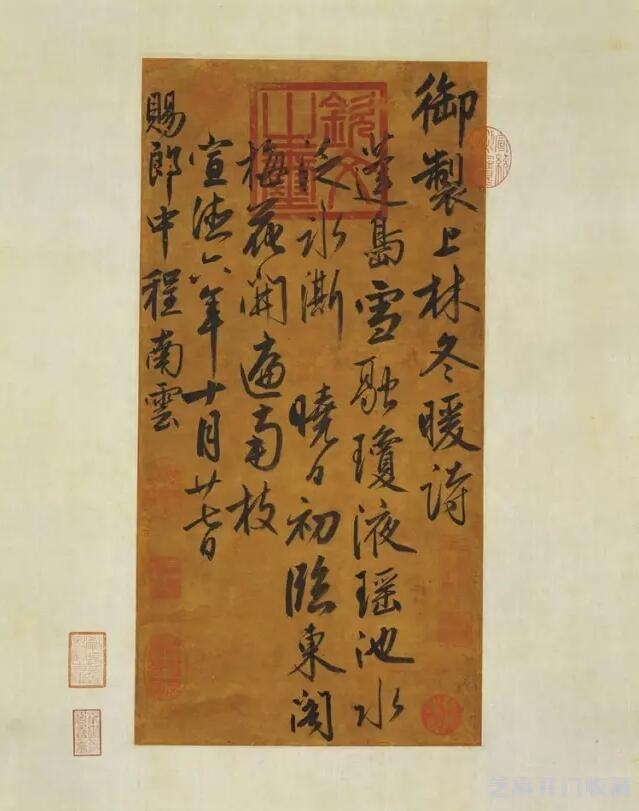 御製上林冬暖詩
蓬島雪融瓊液瑤池水
泛冰澌 曉日初臨東閣
梅花開遍南枝
宣德六年十月廿七日
賜郎中程南雲
欽文之璽
芝麻开门收藏